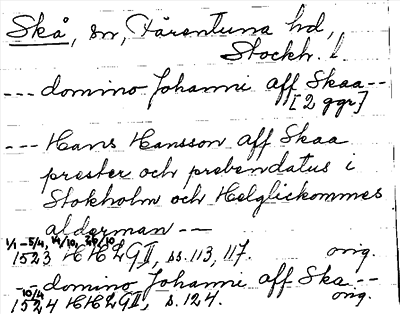 Skå, sn, Färentuna hd,
Stockh. l.
--- domino Johanni aff Skaa --
[2 ggr]
--- Hans Hansson aff Skaa
prester och prebendatus i
Stokholm och Helglickommes
alderman --
1/1 - 5/4, 14/10, 26/10
1523 HHLGII, ss. 113, 117. orig.
-- domino Johanni aff Ska --
10/4
1524 HHLGII, s. 124. orig.